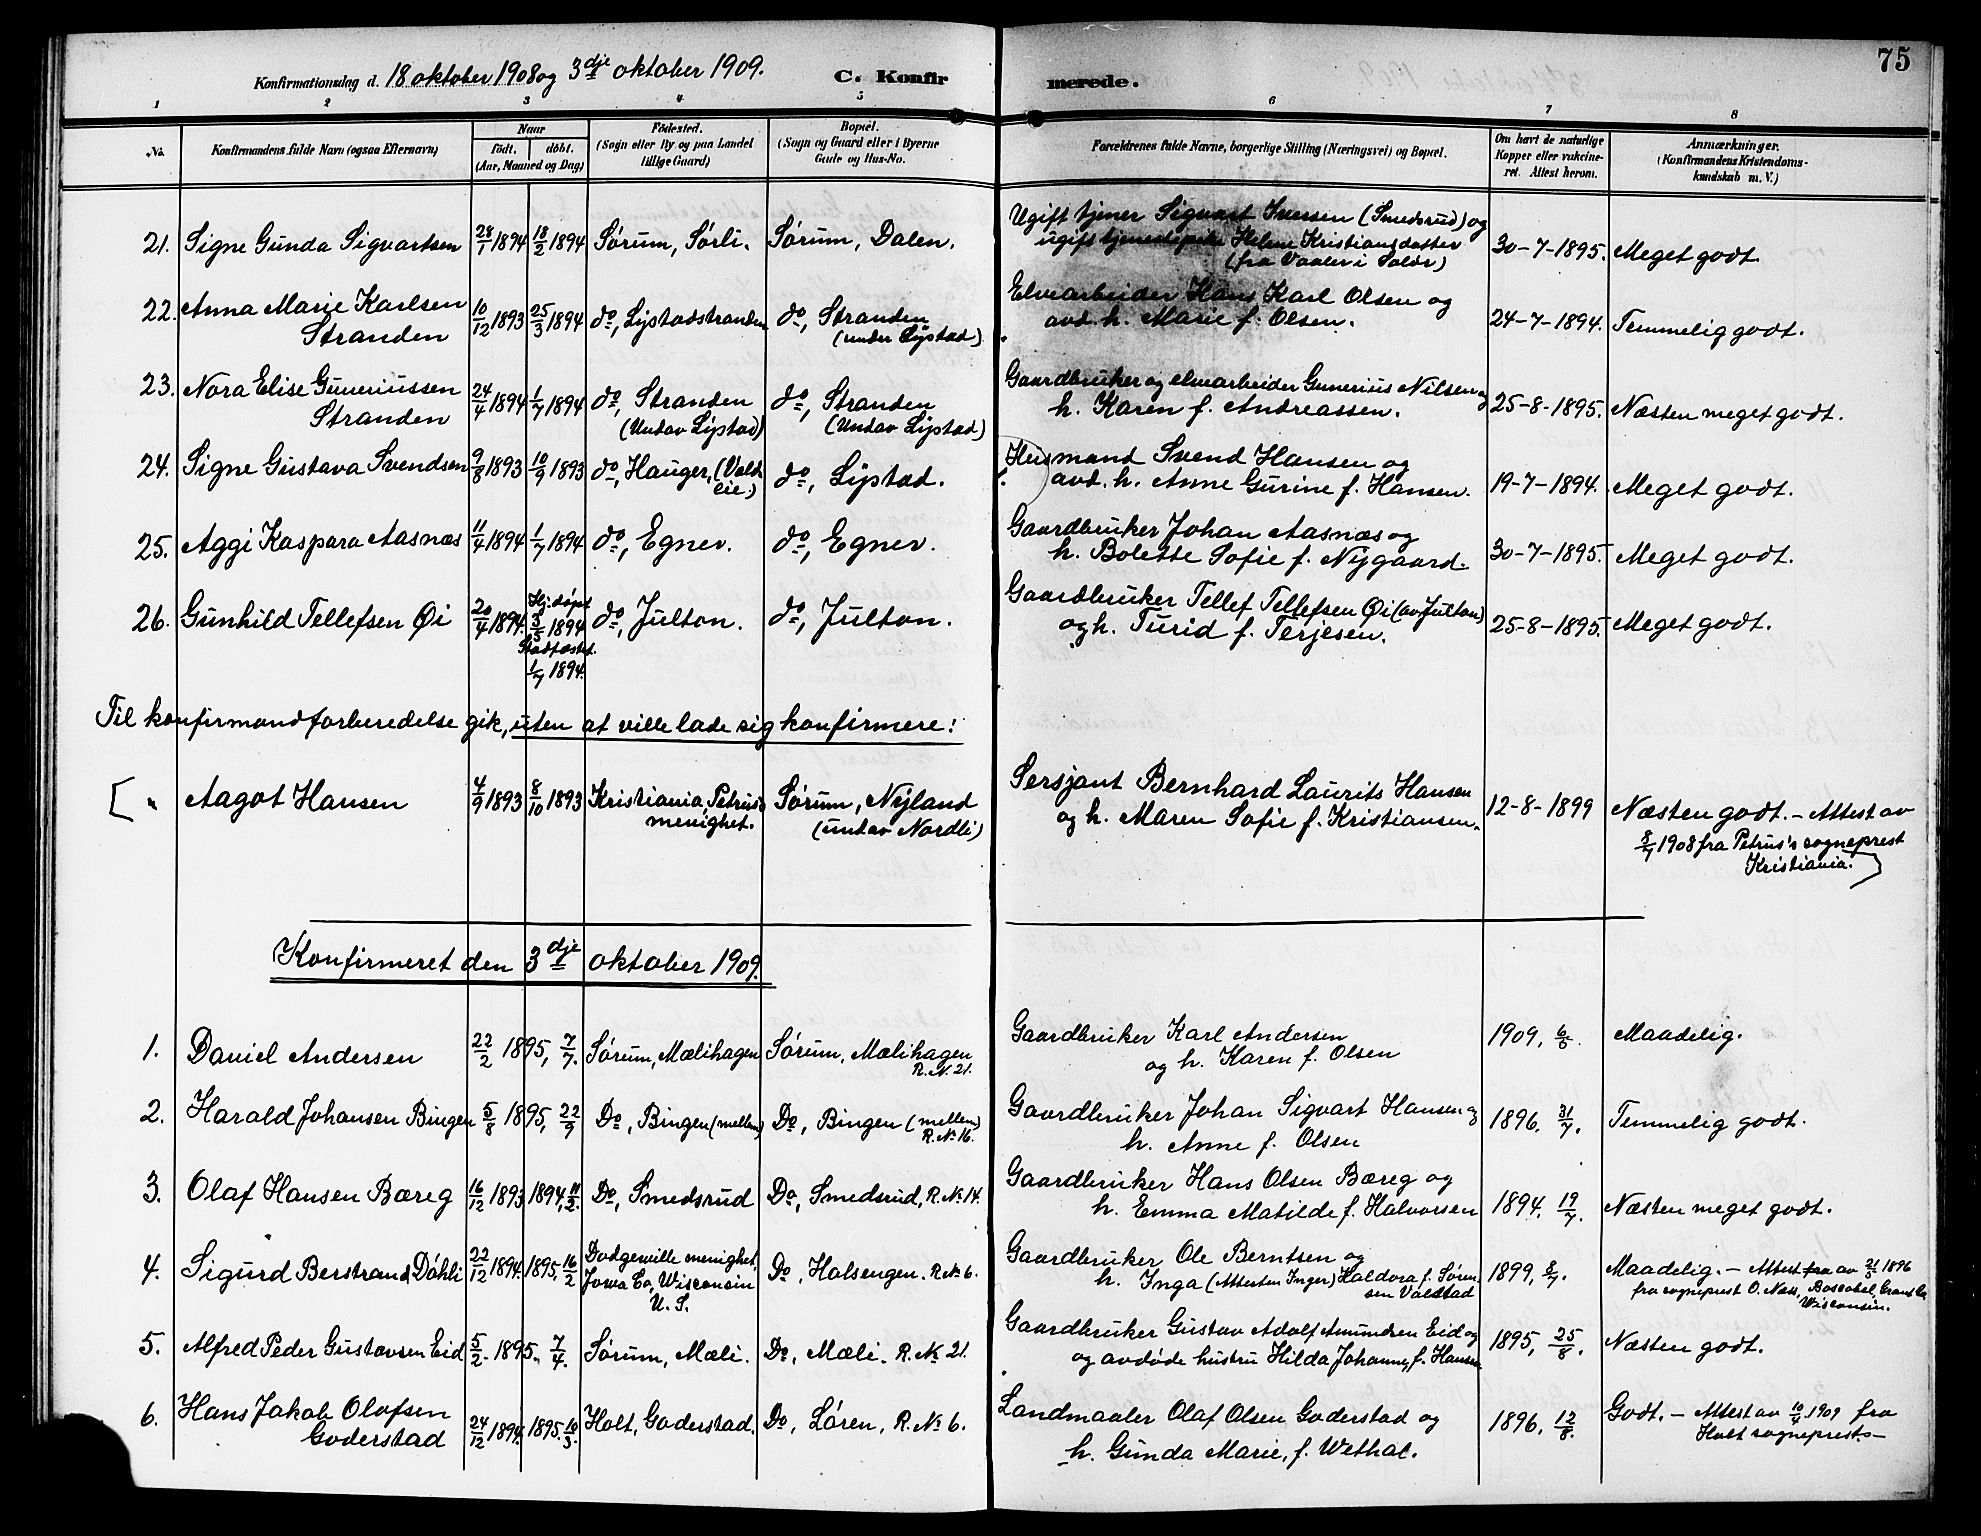 75
Konfirmationsdag d. 18 oktober 1908 og 3dje oktober 1909. C. Konfirmerede.
1 2 3 4 5 6 7 8
No. Konfirmandens fulde Navn (ogsaa Efternavn) Naar født. døbt. (Aar, Maaned og Dag) Fødested. (Sogn eller By og paa Landet tillige Gaard) Bopæl. (Sogn og Gaard eller i Byerne Gade og Hus-No. Forældrenes fulde Navne, borgerlige Stilling (Næringsvei) og Bopæl. Om havt de naturlige Kopper eller vakcineret. Attest herom. Anmærkninger. (Konfirmandens Kristendomskundskab m. V.)
21. Signe Gunda Sigvartsen 28/1 1894 18/2 1894 Sørum, Sørli. Sørum, Dalen. Ugift tjener Sigvart Iversen (Smedsrud) og
ugift tjenestepike Helene Kristiansdatter
(fra Vaaler i Solør) 30-7-1895. Meget godt.
22. Anna Marie Karlsen
Stranden 10/12 1893 25/3 1894 do, Lystadstranden do, Stranden
(under Lystad) Elvearbeider Hans Karl Olsen og
avd. h. Marie f. Olsen. 24-7-1894. Temmelig godt.
23. Nora Elise Guneriussen
Stranden 24/4 1894 1/7 1894 do, Stranden
(Undav Lystad) do, Stranden
(Undav Lystad) Gaardbruker og elvearbeider Gunerius Nilsen og
h. Karen f. Andreassen. 25-8-1895. Næsten meget godt.
24. Signe Gustava Svendsen 9/8 1893 10/9 1893 do, Hauger, (Vold
eie) do, Lystad. Husmand Svend Hansen og
avd. h. Anne Gurine f. Hansen. 19-7-1894. Meget godt.
25. Aggi Kaspara Aasnæs 11/4 1894 1/7 1894 do, Egner. do, Egner. Gaardbruker Johan Aasnæs og
h. Bolette Sofie f. Nygaard. 30-7-1895. Meget godt.
26. Gunhild Tellefsen Øi 20/4 1894. Hj. døpt
3/5 1894
Stadfæstet.
1/7 1894. do, Julton. do, Julton. Gaardbruker Tellef Tellefsen Øi (av Julton)
og h. Turid f. Terjesen. 25-8-1895. Meget godt.
Til konfirmandforberedelse gik, uten at ville lade sig konfirmere:
[ " Aagot Hansen 4/9 1893 8/10 1893 Kristiania, Petrus's
menighet. Sørum, Nyland
(undav Nordli) Sersjant Bernhard Laurits Hansen
og h. Maren Sofie f. Kristiansen. 12-8-1899 Næsten godt. - Attest av
8/7 1908 fra Petrus's sogneprest
Kristiania. ]
Konfirmeret den 3dje oktober 1909.
1. Daniel Andersen 22/2 1895, 7/7. Sørum, Mælihagen Sørum, Mælihagen
R. N. 21. Gaardbruker Karl Andersen
og h. Karen f. Olsen 1909, 6/6. Maadelig.
2. Harald Johansen Bingen 5/8 1895, 22/9 Do, Bingen (mellem) Do, Bingen (mellem)
R. No 16. Gaardbruker Johan Sigvart Hansen og
h. Anne f. Olsen 1896. 31/7. Temmelig godt.
3. Olaf Hansen Bæreg 16/12 1893 1894, 11/2. Do, Smedsrud Do, Smedsrud, R. No 14. Gaardbruker Hans Olsen Bæreg og
h. Emma Matilde f. Halvorsen 1894. 19/7. Næsten meget godt.
4. Sigurd Berstrand Døhli 22/12 1894. 1895, 16/2 Dodgeville menighet,
Iowa Co, Wisconsin
U. S. Do, Halsengen. R. No 6. Gaardbruker Ole Berntsen og
h. Inga (Attesten Inger) Haldora f. Sørensen
Valstad 1899, 8/7. Maadelig. - Attest fra av 21/3 1896
fra sogneprest O. Næss, Boscobel, Grant Co
Wisconsin.
5. Alfred Peder Gustavsen Eid 5/2. 1895. 7/4. Sørum, Mæli. Do, Mæli. R. No 21. Gaardbruker Gustav Adolf Amundsen Eid og
og avdøde hustru Hilda Johanne, f. Hansen 1895, 25/8. Næsten godt.
6. Hans Jakob Olafsen
Goderstad 24/12 1894. 1895. 10/3. Holt, Goderstad. Do, Løren, R. No 6. Landmaaler Olaf Olsen Goderstad og
h. Gunda Marie, f. Wethal. 1896, 12/8. Godt. - Attest av 10/4 1909 fra
Holt sogneprest. -